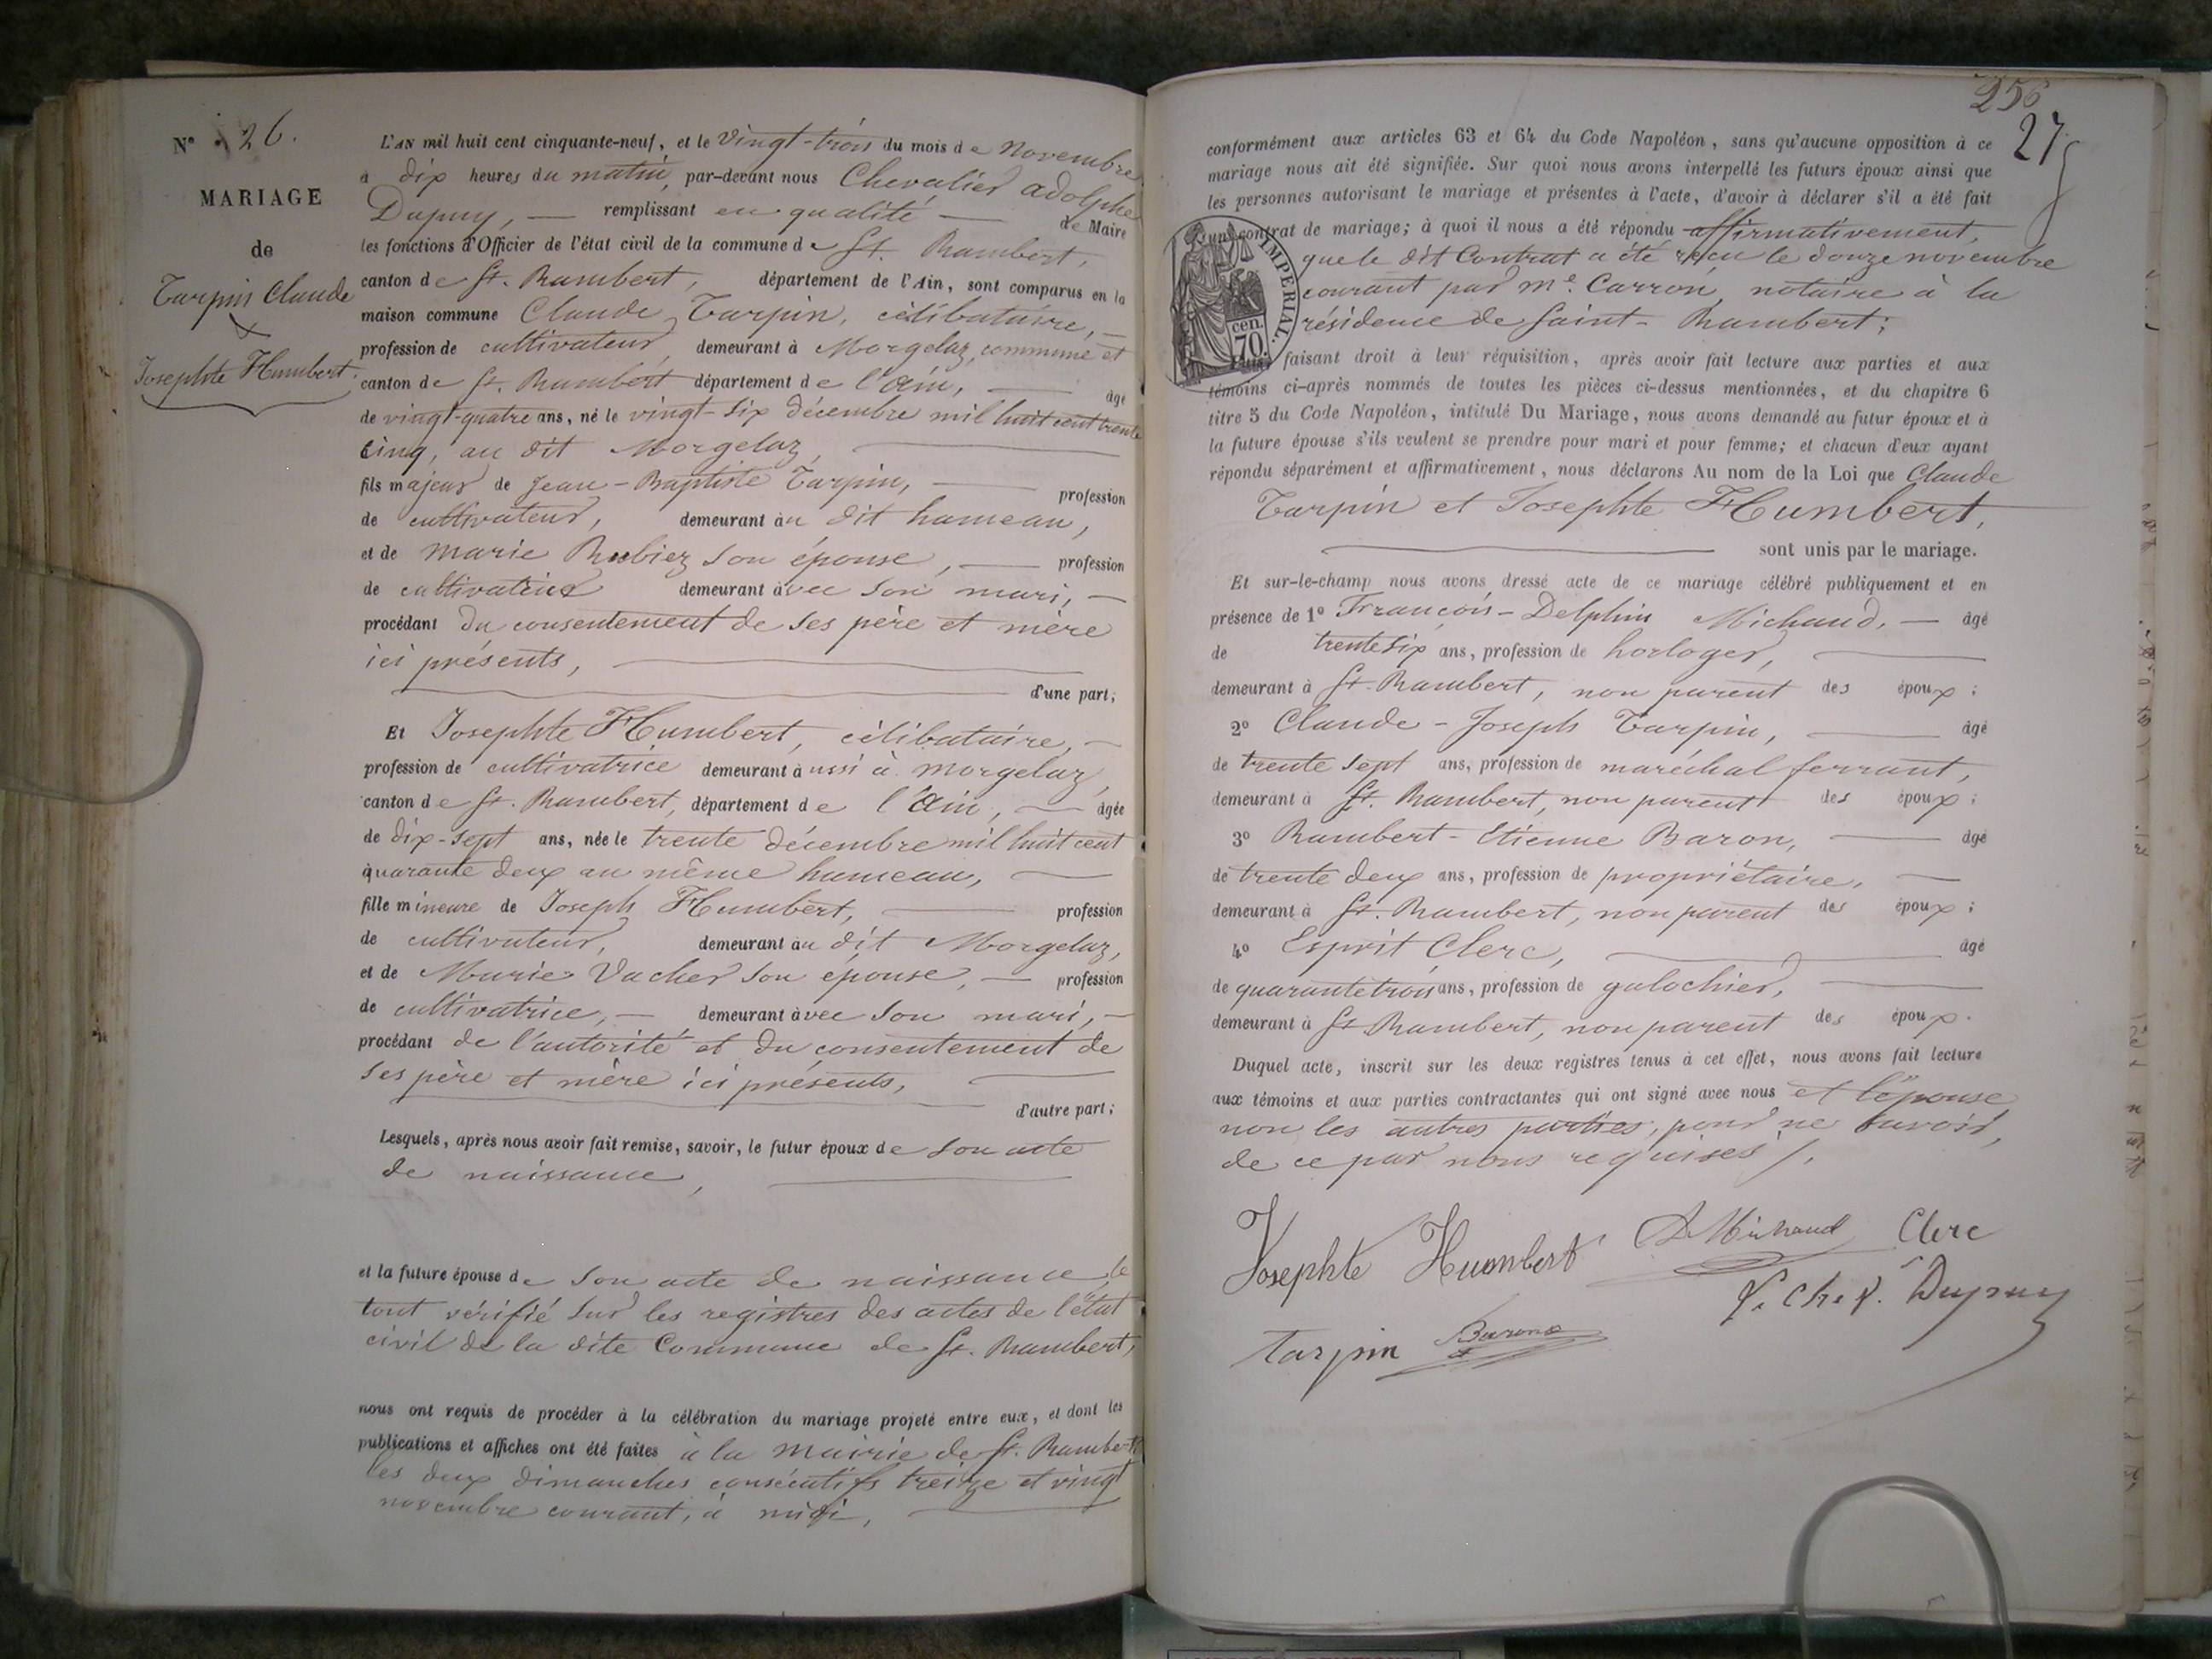 N° 26.
MARIAGE
de
Tarpin Claude
&
Josephte Humbert.
L'AN mil huit cent cinquante-neuf, et le vingt-trois du mois de Novembre
à dix heures du matin, par-devant nous Chevalier Adolphe
Dupuy, — remplissant en qualité — de Maire
les fonctions d'Officier de l'état civil de la commune de St. Rambert,
canton de St. Rambert, département de l'Ain, sont comparus en la
maison commune Claude Tarpin, célibataire, —
profession de cultivateur, demeurant à Morgelaz, commune et
canton de St. Rambert département de l'Ain, — âgé
de vingt-quatre ans, né le vingt-six décembre mil huit cent trente
cinq, au dit Morgelaz, —
fils majeur de Jean-Baptiste Tarpin, — profession
de cultivateur, demeurant au dit hameau,
et de Marie Rubiez son épouse, — profession
de cultivatrice demeurant avec son mari, —
procédant du consentement de ses père et mère
ici présents, —
— d'une part;
Et Josephte Humbert, célibataire, —
profession de cultivatrice demeurant aussi à Morgelaz,
canton de St. Rambert, département de l'Ain, — âgée
de dix-sept ans, née le trente décembre mil huit cent
quarante deux au même hameau, —
fille mineure de Joseph Humbert, — profession
de cultivateur, demeurant au dit Morgelaz,
et de Marie Vacher son épouse, — profession
de cultivatrice, — demeurant avec son mari, —
procédant de l'autorité et du consentement de
ses père et mère ici présents, —
— d'autre part;
Lesquels, après nous avoir fait remise, savoir, le futur époux de son acte
de naissance, —
et la future épouse de son acte de naissance, le
tout vérifié sur les registres des actes de l'état
civil de la dite Commune de St. Rambert,
nous ont requis de procéder à la célébration du mariage projeté entre eux, et dont les
publications et affiches ont été faites à la mairie de St. Rambert
les deux dimanches consécutifs treize et vingt
novembre courant, à midi, —
256
27
conformément aux articles 63 et 64 du Code Napoléon, sans qu'aucune opposition à ce
mariage nous ait été signifiée. Sur quoi nous avons interpellé les futurs époux ainsi que
les personnes autorisant le mariage et présentes à l'acte, d'avoir à déclarer s'il a été fait
un contrat de mariage; à quoi il nous a été répondu affirmativement,
que le dit Contrat a été reçu le douze novembre
courant par Me. Carron, notaire à la
résidence de Saint-Rambert;
IMPERIAL.
cen.
70
Puis, faisant droit à leur réquisition, après avoir fait lecture aux parties et aux
témoins ci-après nommés de toutes les pièces ci-dessus mentionnées, et du chapitre 6
titre 5 du Code Napoléon, intitulé Du Mariage, nous avons demandé au futur époux et à
la future épouse s'ils veulent se prendre pour mari et pour femme; et chacun d'eux ayant
répondu séparément et affirmativement, nous déclarons Au nom de la Loi que Claude
Tarpin et Josephte Humbert,
— sont unis par le mariage.
Et sur-le-champ nous avons dressé acte de ce mariage célébré publiquement et en
présence de 1° François-Delphin Michaud, — âgé
de trente six ans, profession de horloger, —
demeurant à St. Rambert, non parent des époux;
2° Claude-Joseph Tarpin, — âgé
de trente sept ans, profession de maréchal ferrant,
demeurant à St. Rambert, non parent des époux;
3° Rambert-Etienne Baron, — âgé
de trente deux ans, profession de propriétaire, —
demeurant à St. Rambert, non parent des époux;
4° Esprit Clerc, — âgé
de quarante trois ans, profession de galochier, —
demeurant à St. Rambert, non parent des époux.
Duquel acte, inscrit sur les deux registres tenus à cet effet, nous avons fait lecture
aux témoins et aux parties contractantes qui ont signé avec nous et l'épouse
non les autres parties, pour ne savoir,
de ce par nous requises /.
Josephte Humbert Michaud Clerc
Dupuy
Tarpin Baron